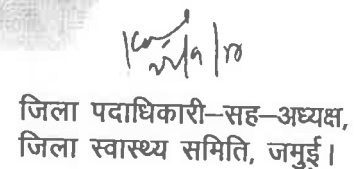 जिला पदाधिकारी–सह–अध्यक्ष,
जिला स्वास्थ्य समिति, जमुई।